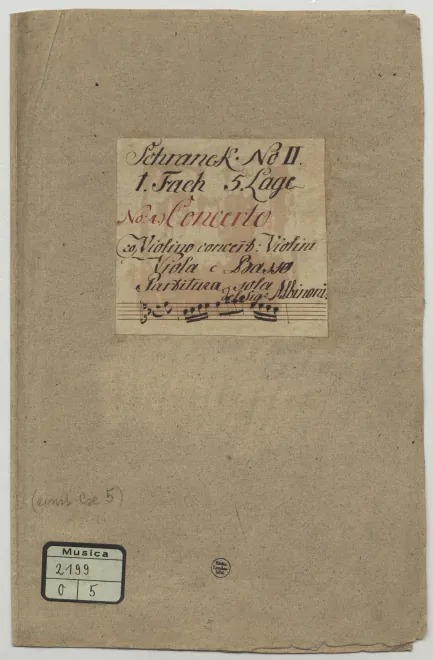 Schranck. No II.
1. Fach 5. Lage
Concerto
co Violino concert: Violini
Viola e Basso
Partitura sola
del Sigr Albinoni.
(einst Cx 5)
Musica
2199
O 5